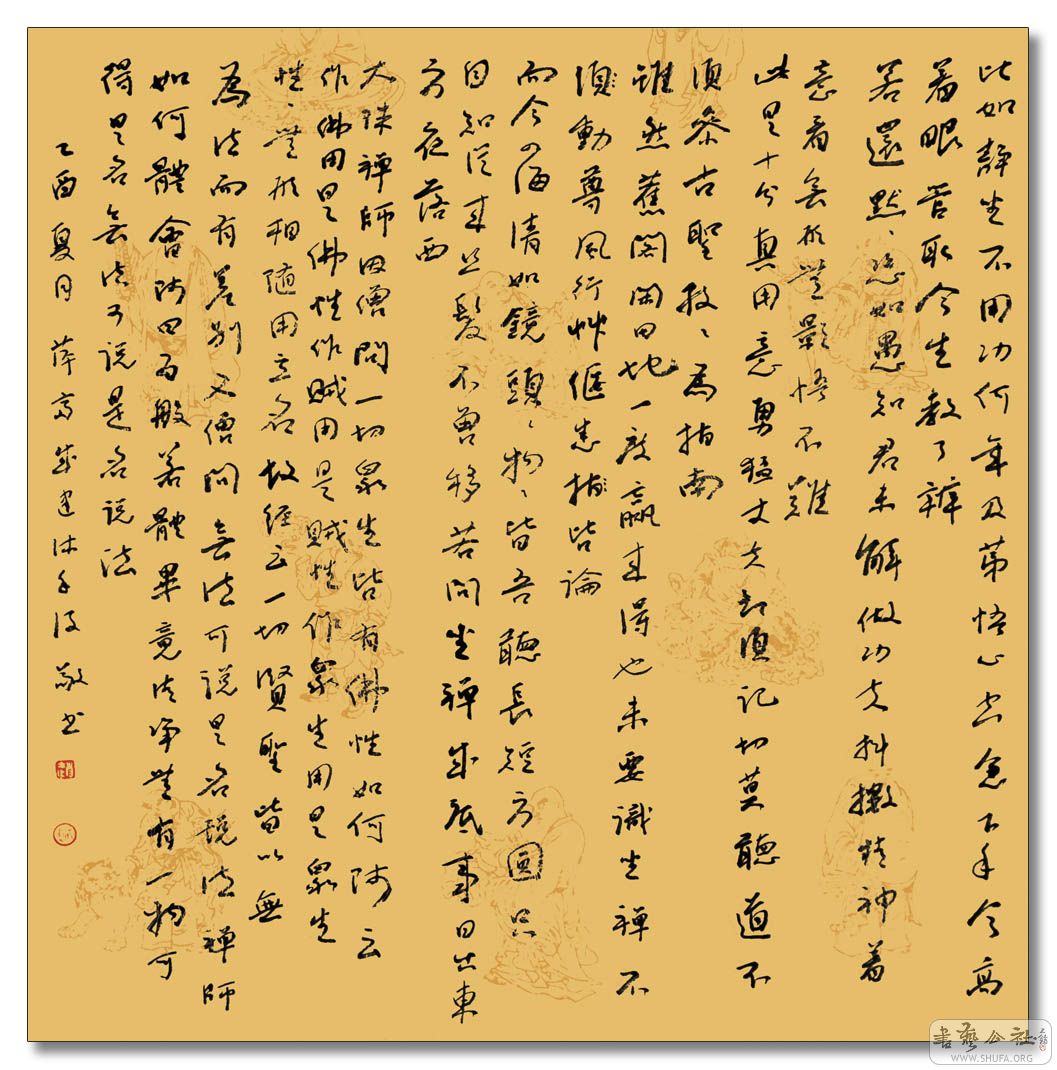 比如静坐不用功何年及第悟心空急下手今高
着眼管取今生教了辦
若還默、恣如愚知君未解做功夫抖擻精神着
意看無形無影悟不難
此是十分真用意勇猛丈夫却須記切莫聽道不
須參古聖孜、為指南
雖然舊閣閑田地一度贏來得也未要識坐禪不
須動尊風行艸偃悉指皆論
而今四海清如鏡頭、物、皆吾聽長短方圓只
自知從來且髮不曾移若問坐禪成底事日出東
方夜落西
大珠禪師因僧問一切衆生皆有佛性如何師云
作佛用是佛性作賊用是賊性作衆生用是衆生
性、無形相隨用立名故經云一切賢聖皆以無
為法而有差别又僧問無法可說是名說法禪師
如何體會師曰若般若體畢竟清淨無有一物可
得是名無法可說是名說法
乙酉夏月 薛 敬書
書藝公社
WWW.SHUFA.ORG